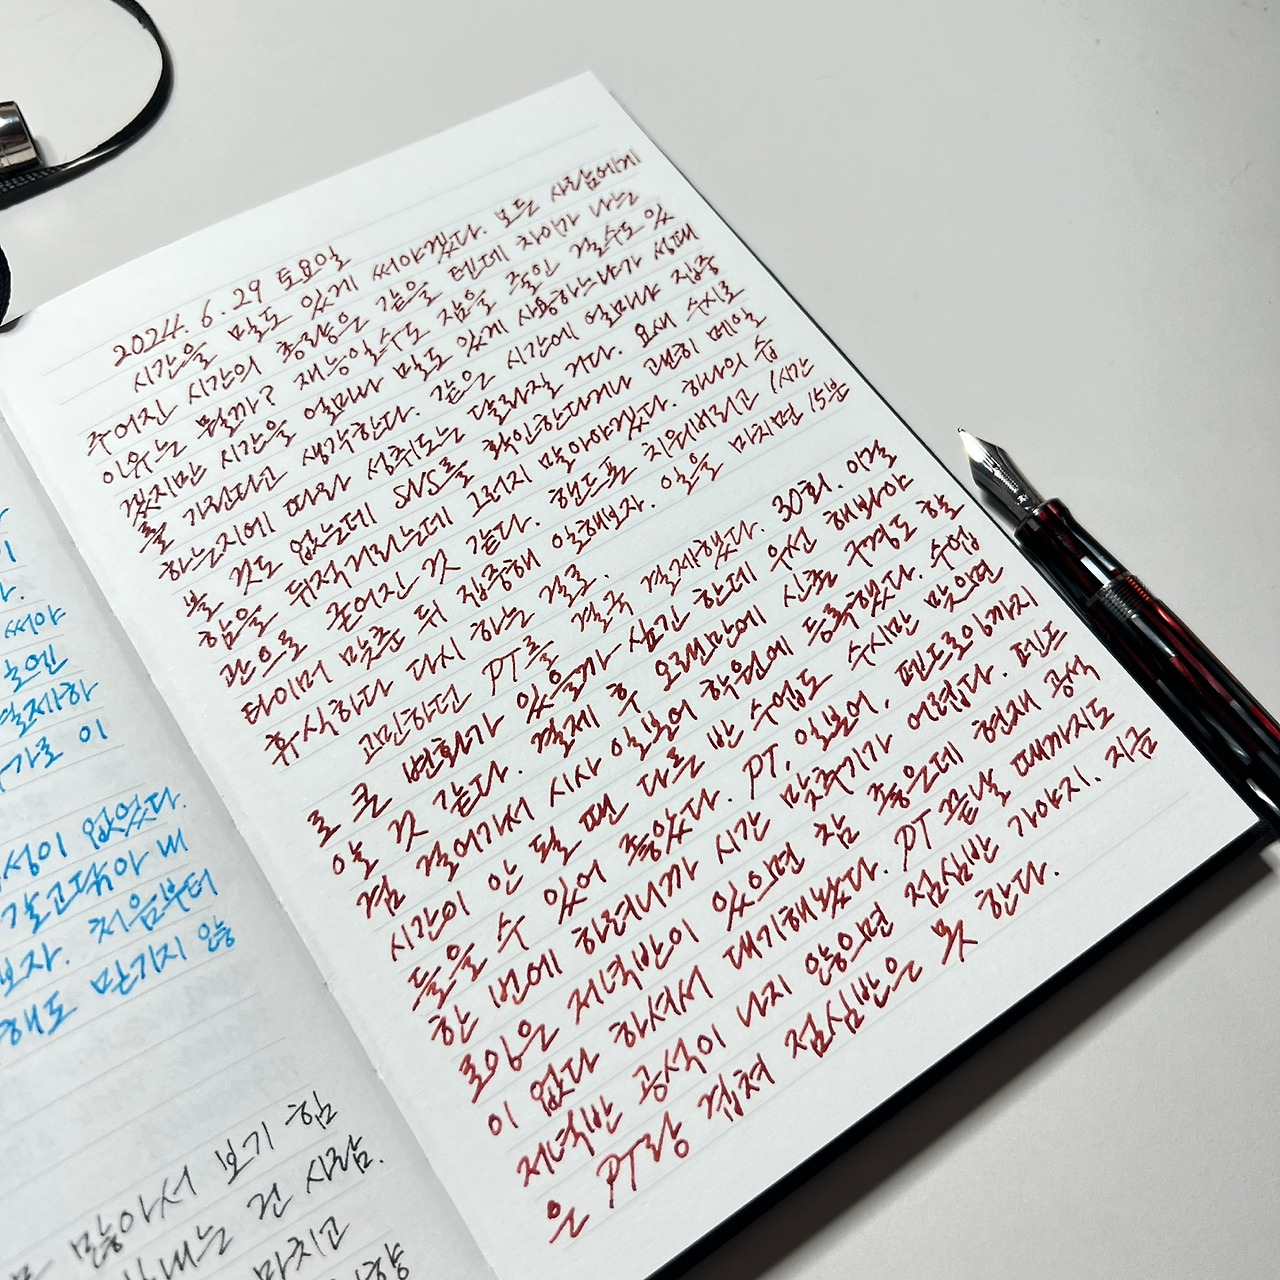 써야
결제하
성이 없었다.
보자. 처음부터
해도 만기지 않
많아서 보기 힘
내는 건 사람.
마치고
2024. 6. 29 토요일
시간을 밀도 있게 써야겠다. 모든 사람에게
주어진 시간의 총량은 같을 텐데 차이가 나는
이유는 뭘까? 재능일수도 잠을 줄인 걸수도 있
겠지만 시간을 얼마나 밀도 있게 사용하느냐가 성패
를 가른다고 생각한다. 같은 시간에 얼마나 집중
하는지에 따라 성취도는 달라질 거다. 요새 수시로
볼 것도 없는데 SNS를 확인한다거나 괜히 메일
함을 뒤적거리는데 그러지 말아야겠다. 하나의 습
관으로 굳어진 것 같다. 핸드폰 치워버리고 1시간
타이머 맞춘 뒤 집중해 일해보자. 일을 마치면 15분
휴식하다 다시 하는 걸로.
고민하던 PT를 결국 결제했다. 30회. 이걸
로 큰 변화가 있을까 싶긴 한데 우선 해봐야
알 것 같다. 결제 후 오랜만에 신촌 구경도 할
겸 걸어가서 시사 일본어 학원에 등록했다. 수업
시간이 안 될 땐 다른 반 수업도 수시만 맞으면
들을 수 있어 좋았다. PT, 일본어, 펜드로잉까지
한 번에 하려니까 시간 맞추기가 어렵다. 펜드
로잉은 저녁반이 있으면 참 좋은데 현재 공석
이 없다 하셔서 대기해놨다. PT 끝날 때까지도
저녁반 공석이 나지 않으면 점심반 가야지. 지금
은 PT랑 겹쳐 점심반은 못 한다.